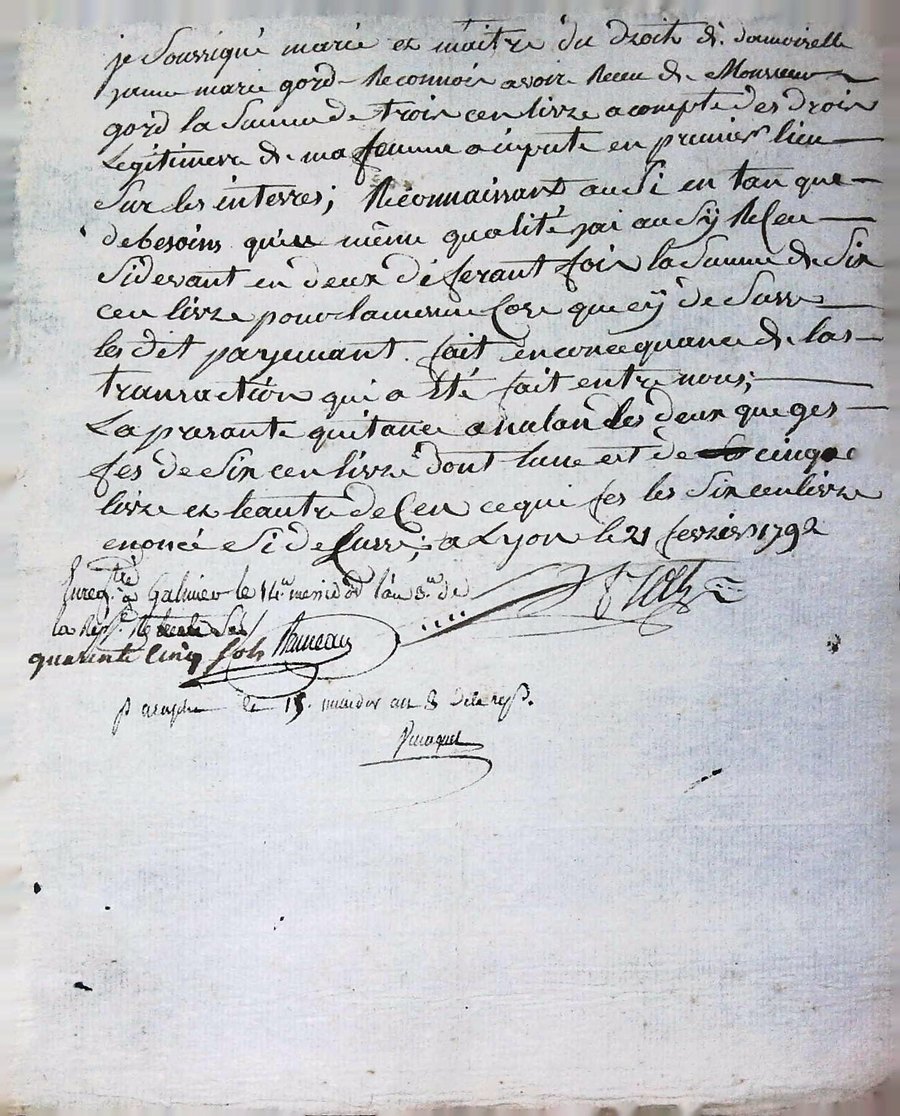 je Soussigné marié et maitre du droit de damoiselle
jeanne marie gord Reconnois avoir Receu de Monsieur
gord la Somme de trois cen livre acompte des drois
Legitimere de ma femme a inpute en premier lieu
Sur les interres; Reconnaissant ausi en tan que
debesoins qu'en même qualité jai ausy Receu
Sidevant en deux diferant fois la Somme de Six
cen livre pour la meme Cose que cy de Surre
les dit payemant fait en concequance de las
transaction qui a Eté fait entre nous;
La prasante quitance anulan les deux que ges
fes de Six cen livre dont lune est de cinqc
livre et leautre de Cen ce qui fes les Six cen livre
enoncé Si de Surre; a Lyon le 21 fevrier 1792
Enregtré a Galmier le 14e mesidor l'an 8e de
la Repe. Re
quarente Cinq sols Rameau
paraphe le 15 midor an 8 dela rep.